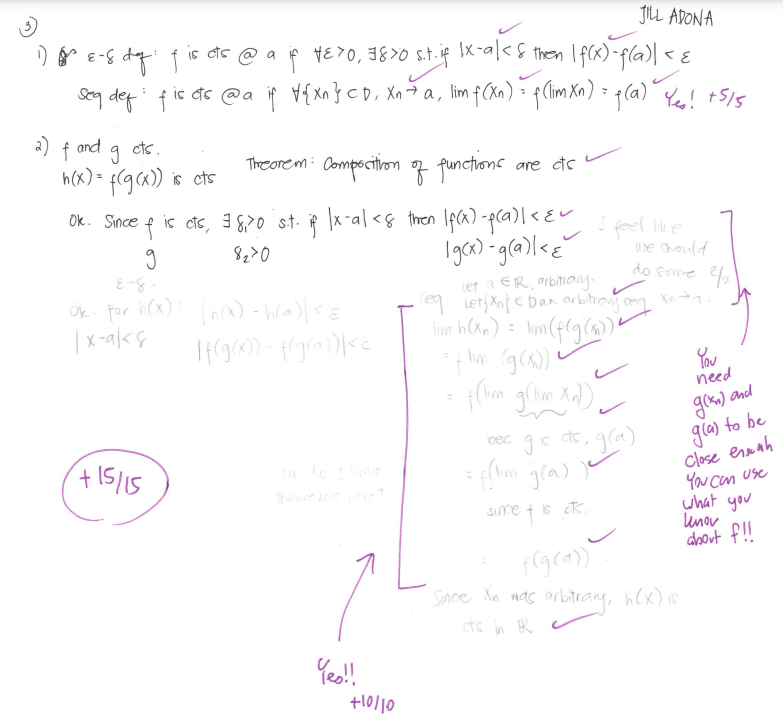 JILL ADONA
③
1) ε-δ def: f is cts @ a if ∀ε>0, ∃δ>0 s.t. if |x-a|<δ then |f(x)-f(a)| < ε
Seq def: f is cts @ a if ∀{xn}⊂D, xn→a, lim f(xn) = f(lim xn) = f(a) Yes! +5/5
2) f and g cts.
h(x) = f(g(x)) is cts Theorem: Composition of functions are cts
Ok. Since f is cts, ∃δ1>0 s.t. if |x-a|<δ then |f(x)-f(a)|<ε
g δ2>0 |g(x)-g(a)|<ε
I feel like
we should
do some ε/2
ε-δ.
Ok. For h(x): |h(x) - h(a)| < ε
|x-a|<δ |f(g(x)) - f(g(a))|<ε
Seq: let a ∈ ℝ, arbitrary.
let {xn} ⊂ D an arbitrary seq, xn→a.
lim h(xn) = lim(f(g(xn)))
= f lim (g(xn))
= f(lim g(lim xn))
bec g is cts, g(a)
= f(lim g(a))
since f is cts,
= f(g(a))
Since xn was arbitrary, h(x) is
cts in ℝ
or do I have
theorems here?
+15/15
Yes!!
+10/10
You
need
g(xn) and
g(a) to be
close enough
You can use
what you
know
about f!!